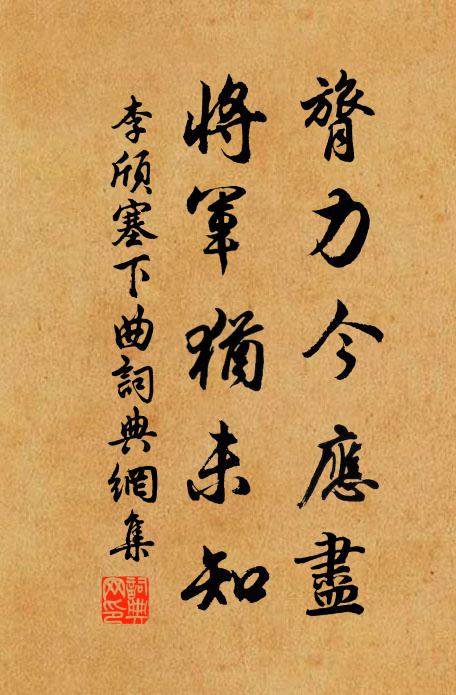 膂力今應盡
將軍猶未知
李頎塞下曲詞典網集
詞典网印